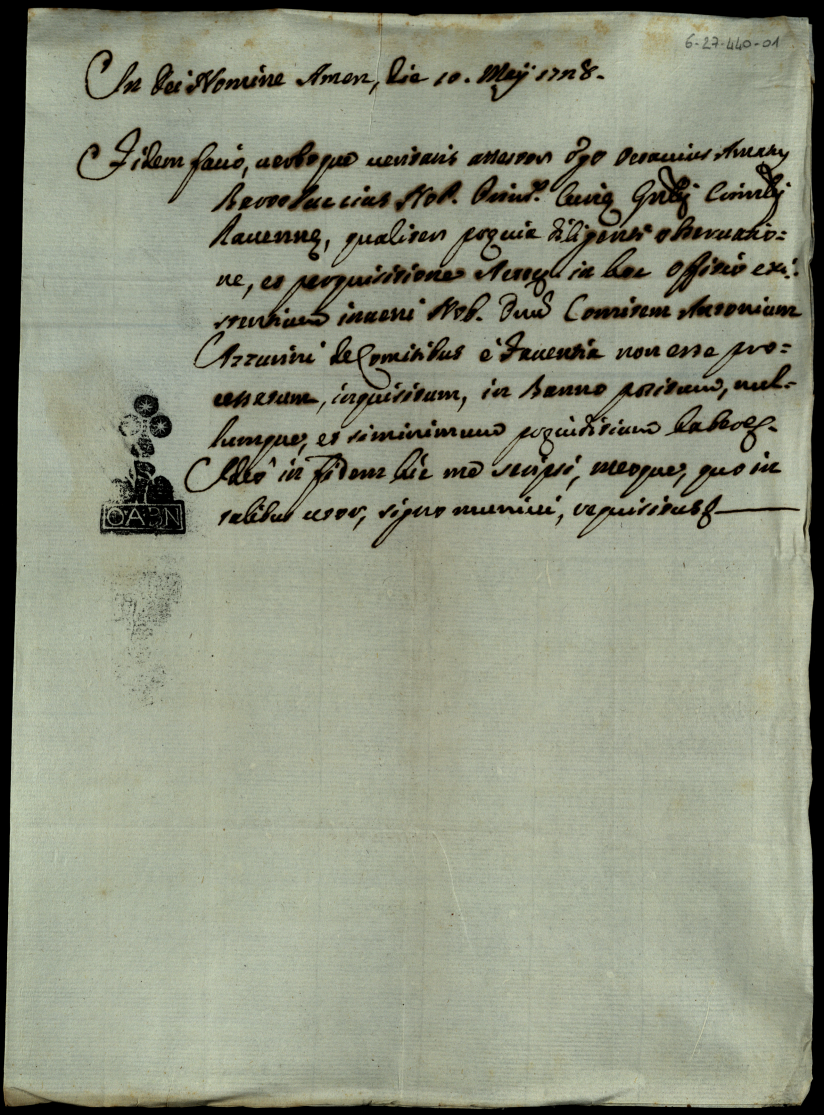 6-27-440-01
In Dei Nomine Amen, die 10. Maij 1728.
Fidem facio, verboque veritatis attestor Ego Octavius Amatus
Not. Curiæ
Ravennæ, qualiter prævia diligenti observatio=
ne, et perquisitione in hoc Officio exi=
stentium inveni Nob. Dnũ Comitem Antonium
Azzurini de Comitibus è Faventia non esse pro=
cessatum, inquisitum, in Banno positum, nul=
lumque, et siminimum præjuditium habere.
Ideò in fidem hic me scripsi, meoque, quo in
talibus utor, signo munivi, requisitus
O·A·B·N